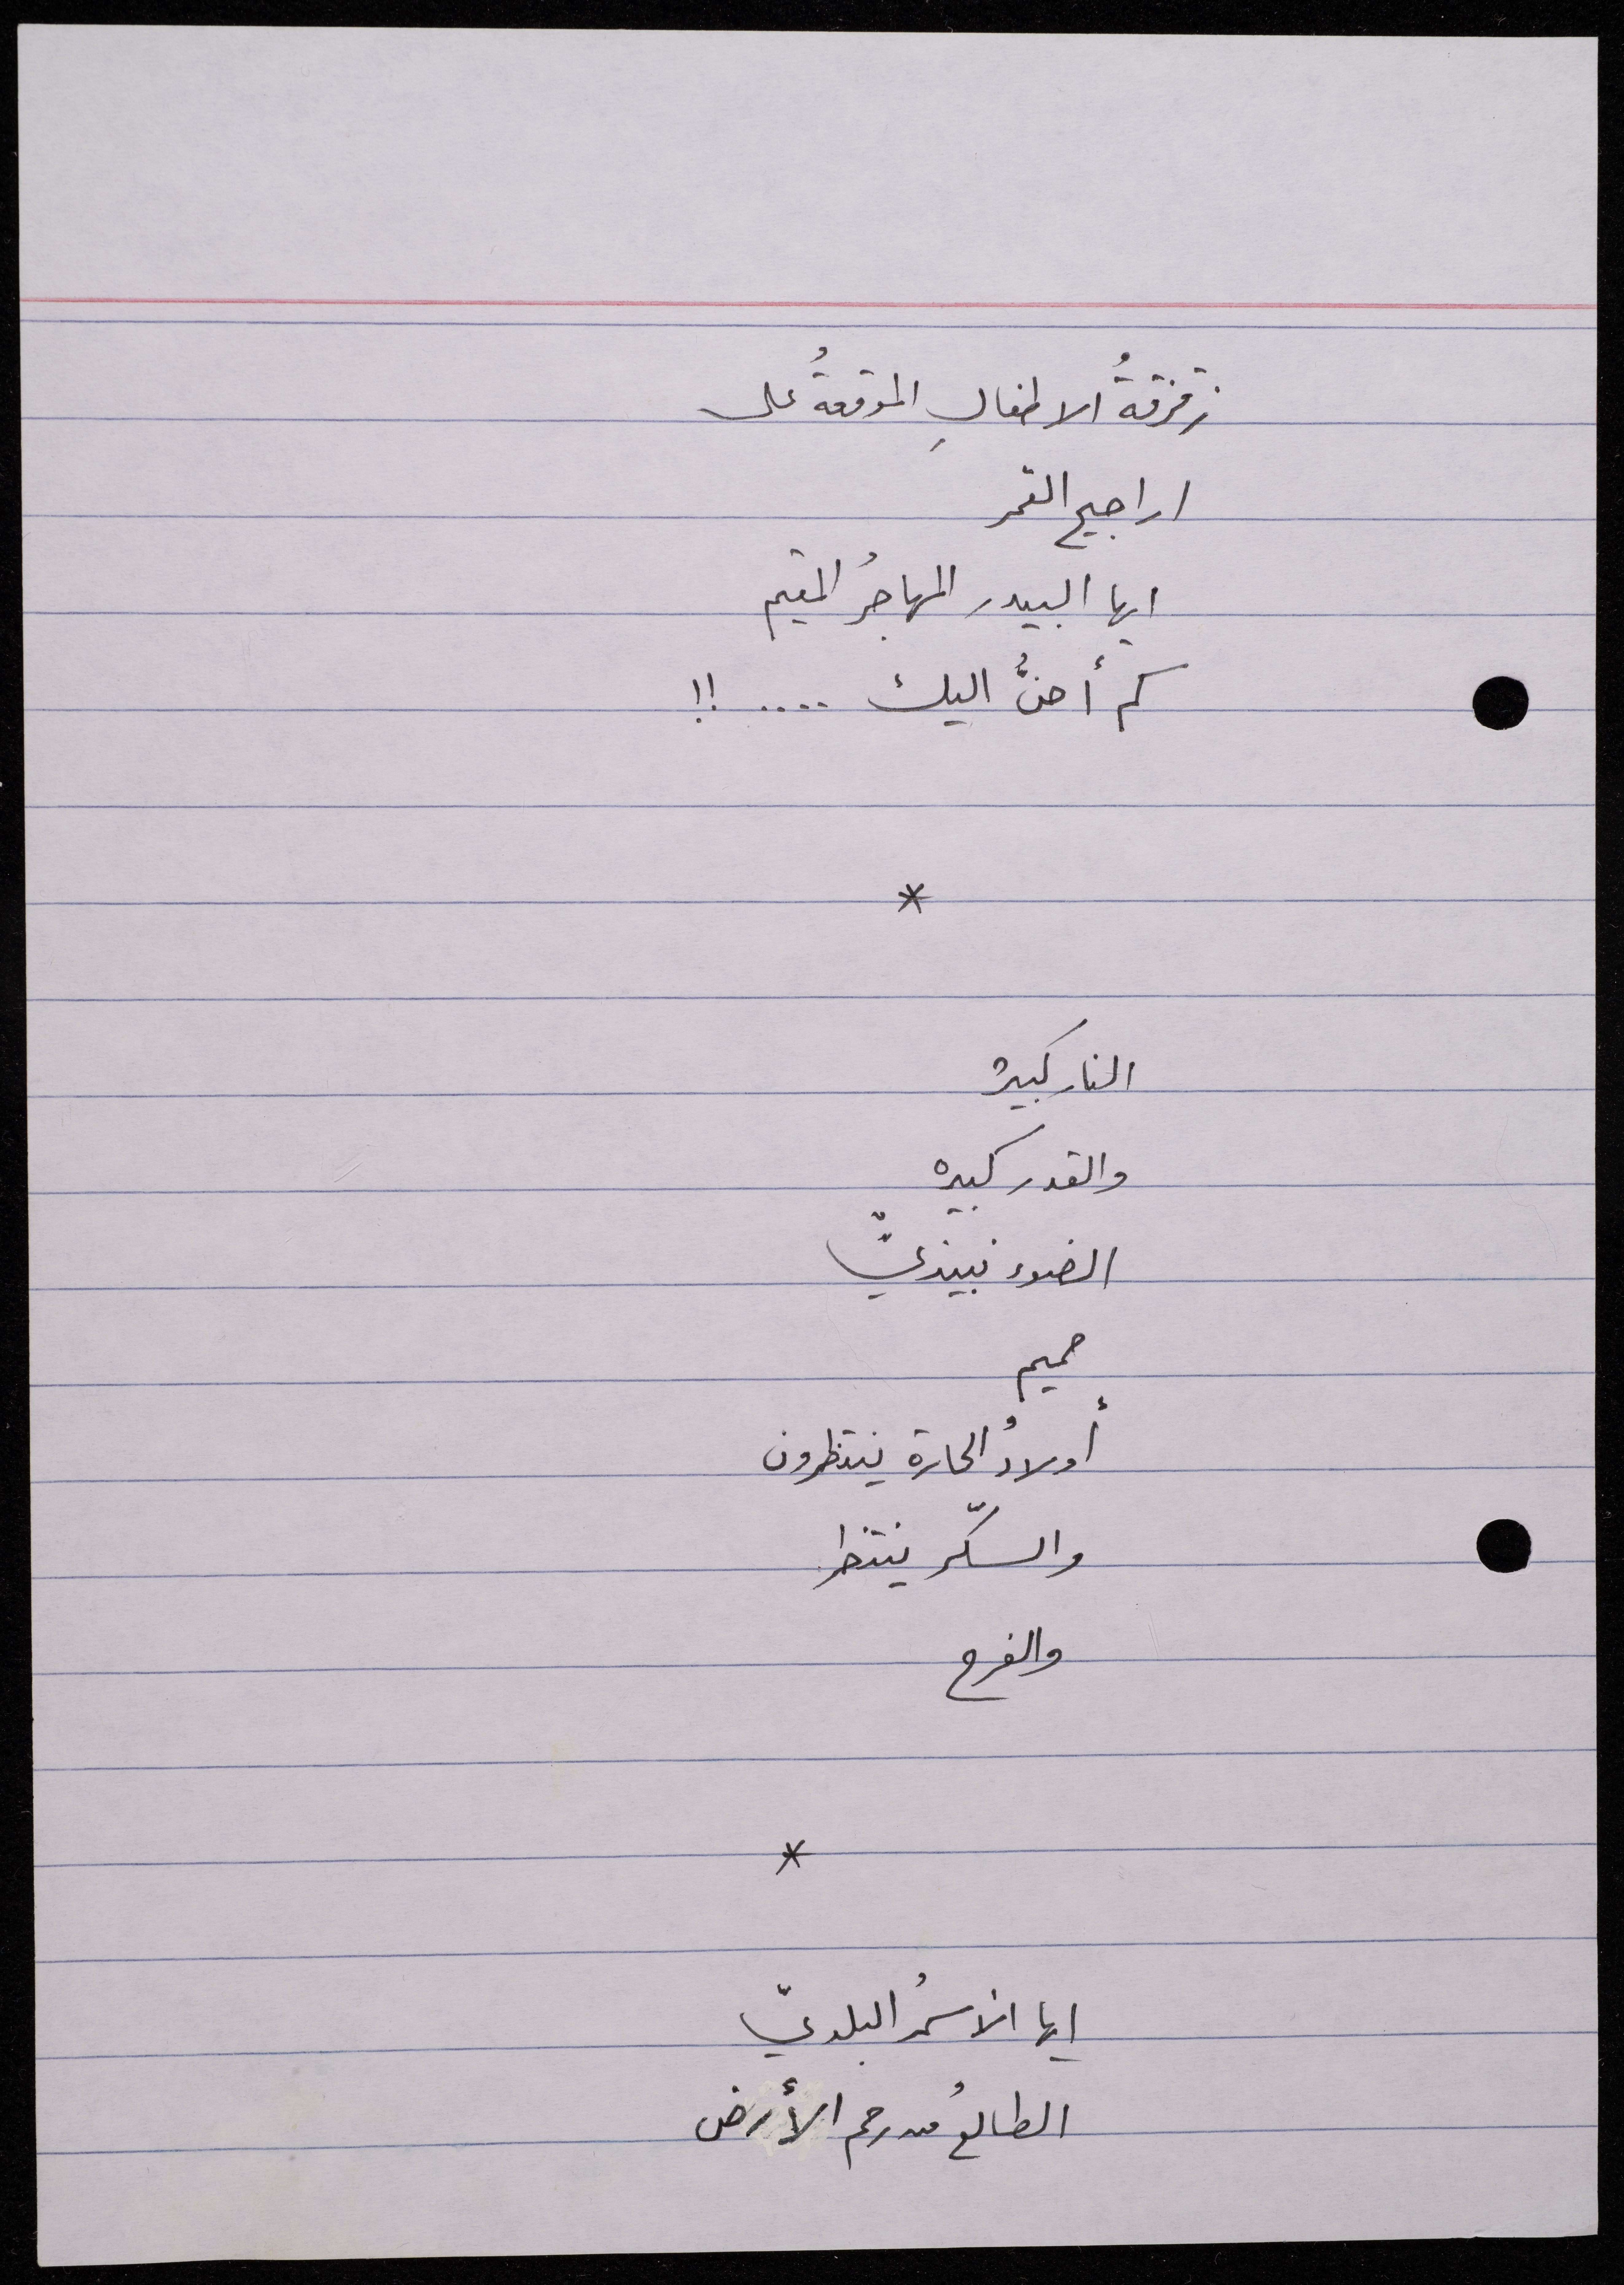 زقزقةُ الاطفالِ الموقعةُ على
اراجيح القمر
ايها البيدر المهاجرُ المقيم
كم أحنُّ اليك .... !!
*
النار كبيرة
والقدر كبيره
الضوء نبيذيّ
حميم
أولادُ الحارة ينتظرون
والسكّر ينتظر
والفرح
*
ايها الاسمرُ البلديّ
الطالعُ من رحم الأرض